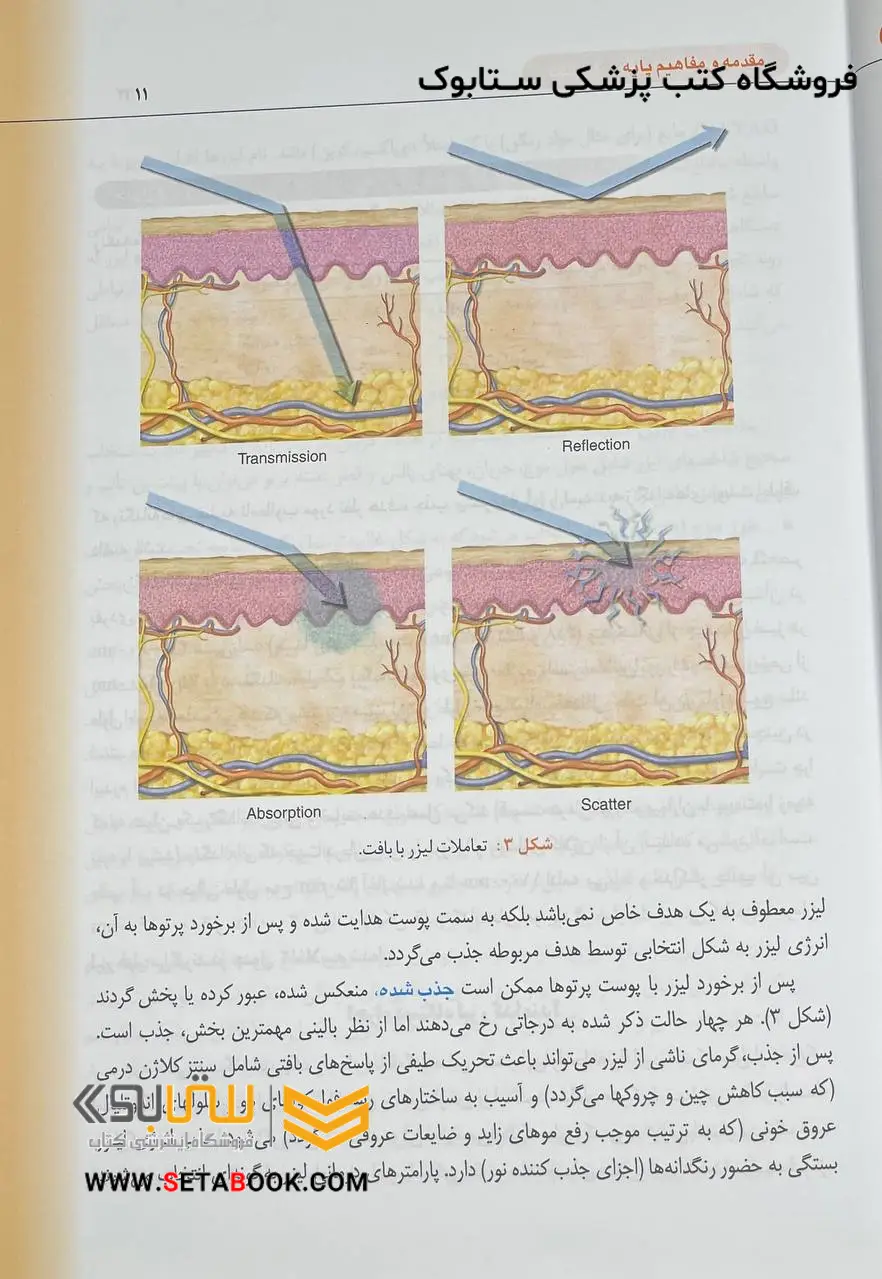 مقدمه و مفاهیم پایه
فروشگاه کتب پزشکی ستابوک
۱۱
Transmission
Reflection
Absorption
Scatter
شکل ۳: تعاملات لیزر با بافت.
لیزر معطوف به یک هدف خاص نمی‌باشد بلکه به سمت پوست هدایت شده و پس از برخورد پرتوها به آن،
انرژی لیزر به شکل انتخابی توسط هدف مربوطه جذب می‌گردد.
پس از برخورد لیزر با پوست پرتوها ممکن است جذب شده، منعکس شده، عبور کرده یا پخش گردند
(شکل ۳). هر چهار حالت ذکر شده به درجاتی رخ می‌دهند اما از نظر بالینی مهمترین بخش، جذب است.
پس از جذب، گرمای ناشی از لیزر می‌تواند باعث تحریک طیفی از پاسخ‌های بافتی شامل سنتز کلاژن درمی
(که سبب کاهش چین و چروکها می‌گردد) و آسیب به ساختارهای
عروق خونی (که به ترتیب موجب رفع موهای زاید و ضایعات عروقی
بستگی به حضور رنگدانه‌ها (اجزای جذب کننده نور) دارد. پارامترهای درمانی لیزر به گونه‌ای انتخاب
ستابوک
فروشگاه اینترنتی کتاب
WWW.SETABOOK.COM